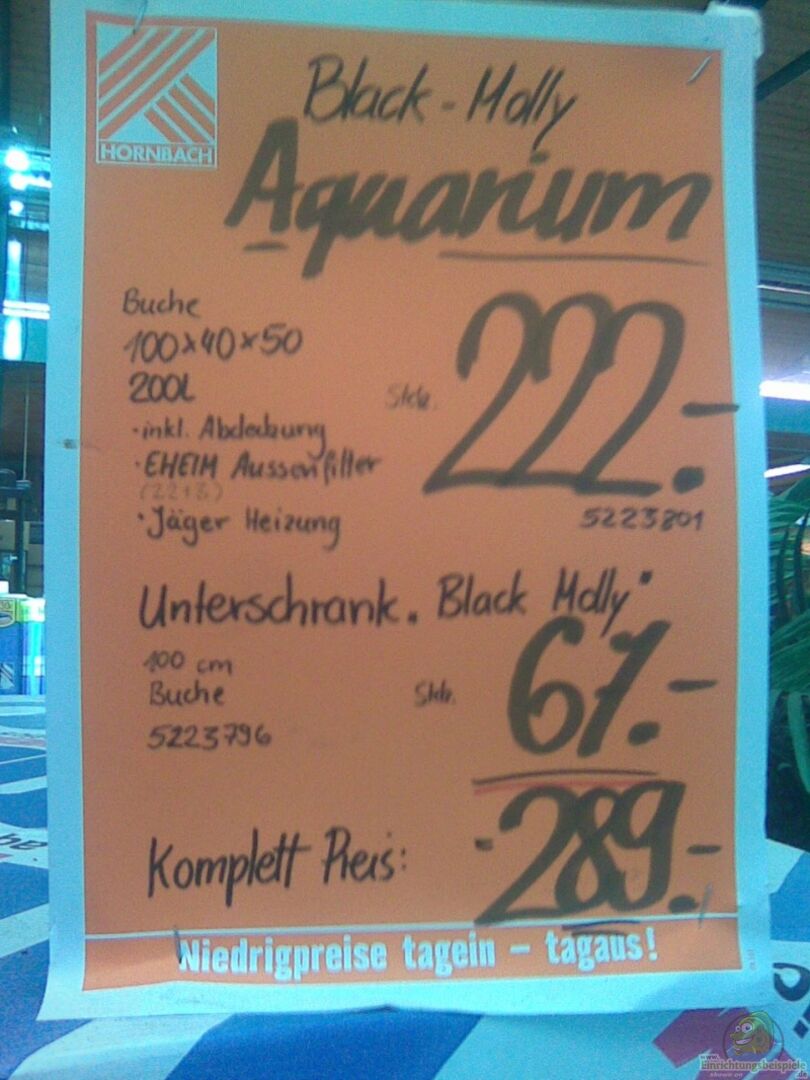 HORNBACH
Black-Molly
Aquarium
Buche
100x40x50
200L
Stck. 222.-
•inkl. Abdeckung
•EHEIM Aussenfilter
5223801
•Jäger Heizung
Unterschrank "Black Molly"
100 cm
Buche
Stck. 67.-
5223796
Komplett Preis: -289.-
Niedrigpreise tagein – tagaus!
www.
Einrichtungsbeispiele
.de